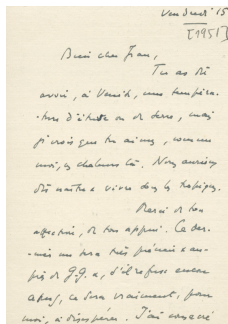 Vendredi 15
[1951]
Bien cher Jean,
Tu as dû
avoir, à Venise, une tempéra-
ture d'étuve ou de serre, mais
je crois que tu aimes, comme
moi, ces chaleurs là. Nous aurions
dû naître et vivre sous les tropiques.
Merci de ton
affection, de ton appui. Ce der-
nier me sera très précieux au-
près de G.G. et, s'il refuse encore
, ce sera vraiment, pour
moi, à désespérer. J'ai consacré